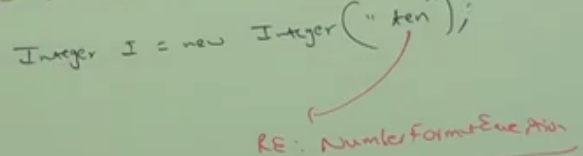 Integer I = new Integer("ten");
RE: NumberFormatException